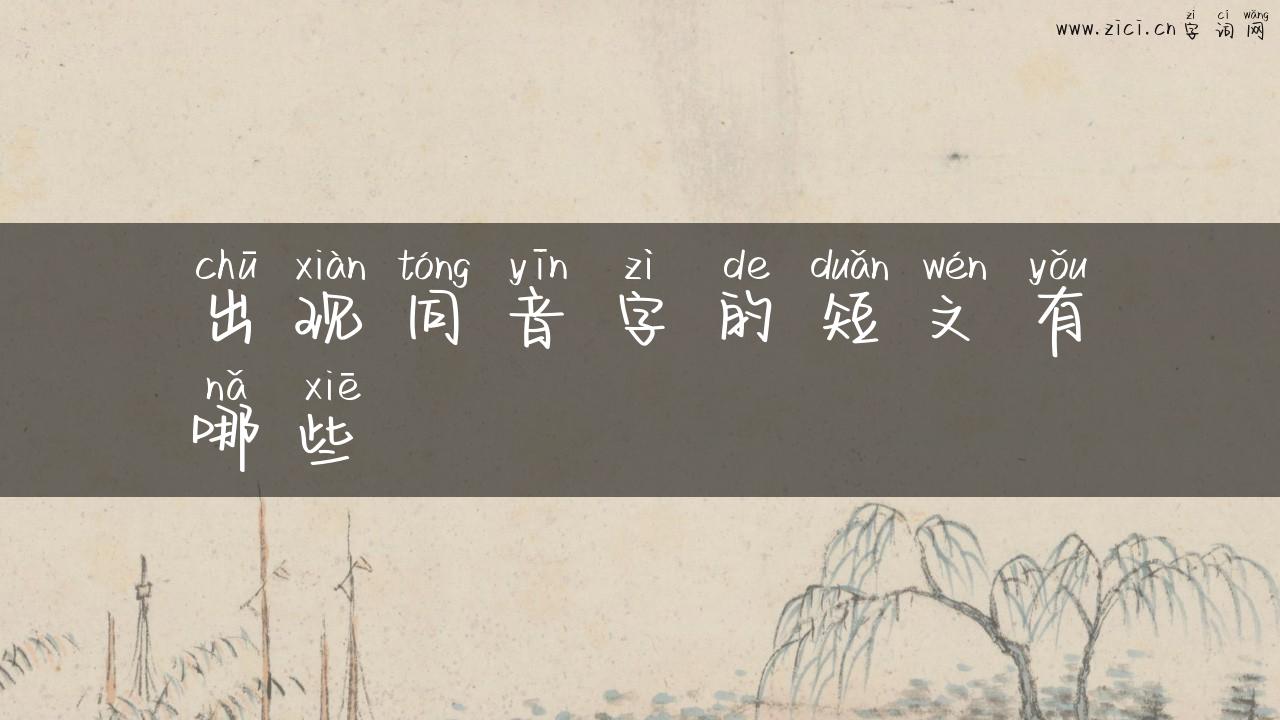 www.zici.cn 字词网
zì cí wǎng
chū xiàn tóng yīn zì de duǎn wén yǒu
出现同音字的短文有
nǎ xiē
哪些